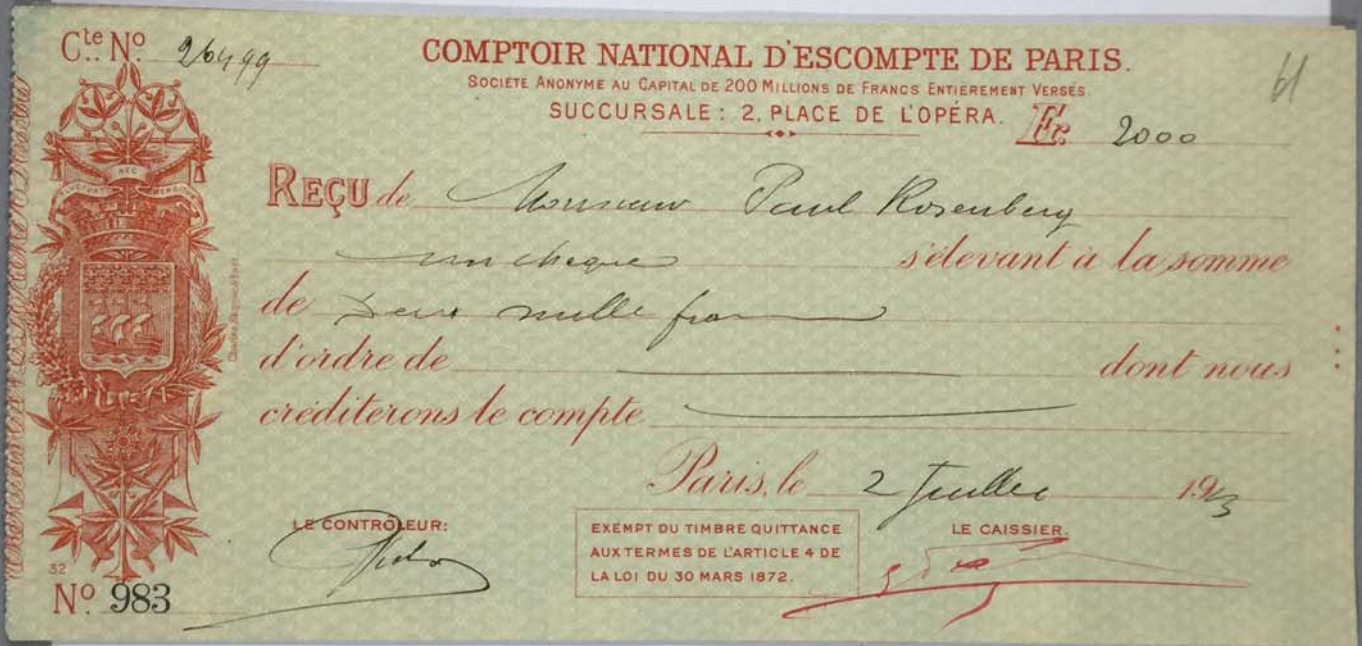 Cte No 26499
COMPTOIR NATIONAL D'ESCOMPTE DE PARIS.
61
SOCIÉTÉ ANONYME AU CAPITAL DE 200 MILLIONS DE FRANCS ENTIÈREMENT VERSÉS.
SUCCURSALE : 2, PLACE DE L'OPÉRA.
Fr. 2000
REÇU de Monsieur Paul Rosenberg
un cheque s'élevant à la somme
de Deux mille fran
d'ordre de dont nous
créditerons le compte
Paris, le 2 Juillet 1913
LE CONTRÔLEUR:
EXEMPT DU TIMBRE QUITTANCE
AUX TERMES DE L'ARTICLE 4 DE
LA LOI DU 30 MARS 1872.
LE CAISSIER.
FLUCTUAT NEC MERGITUR
32
No 983